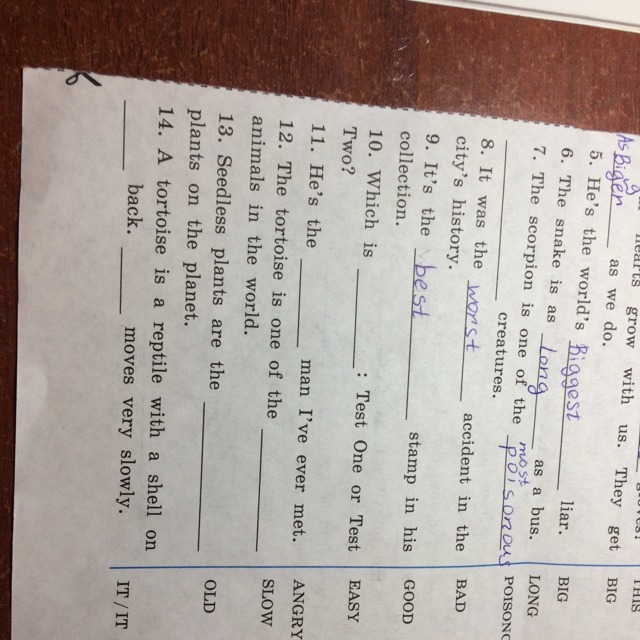 hearts grow with us. They get
As Bigger as we do. BIG
5. He's the world's Biggest liar. BIG
6. The snake is as long as a bus. LONG
7. The scorpion is one of the most poisonous creatures.
8. It was the worst accident in the BAD
city's history.
9. It's the best stamp in his GOOD
collection.
10. Which is ________: Test One or Test EASY
Two?
11. He's the ________ man I've ever met. ANGRY
12. The tortoise is one of the ________ SLOW
animals in the world.
13. Seedless plants are the ________ OLD
plants on the planet.
14. A tortoise is a reptile with a shell on
________ back. ________ moves very slowly. IT / IT